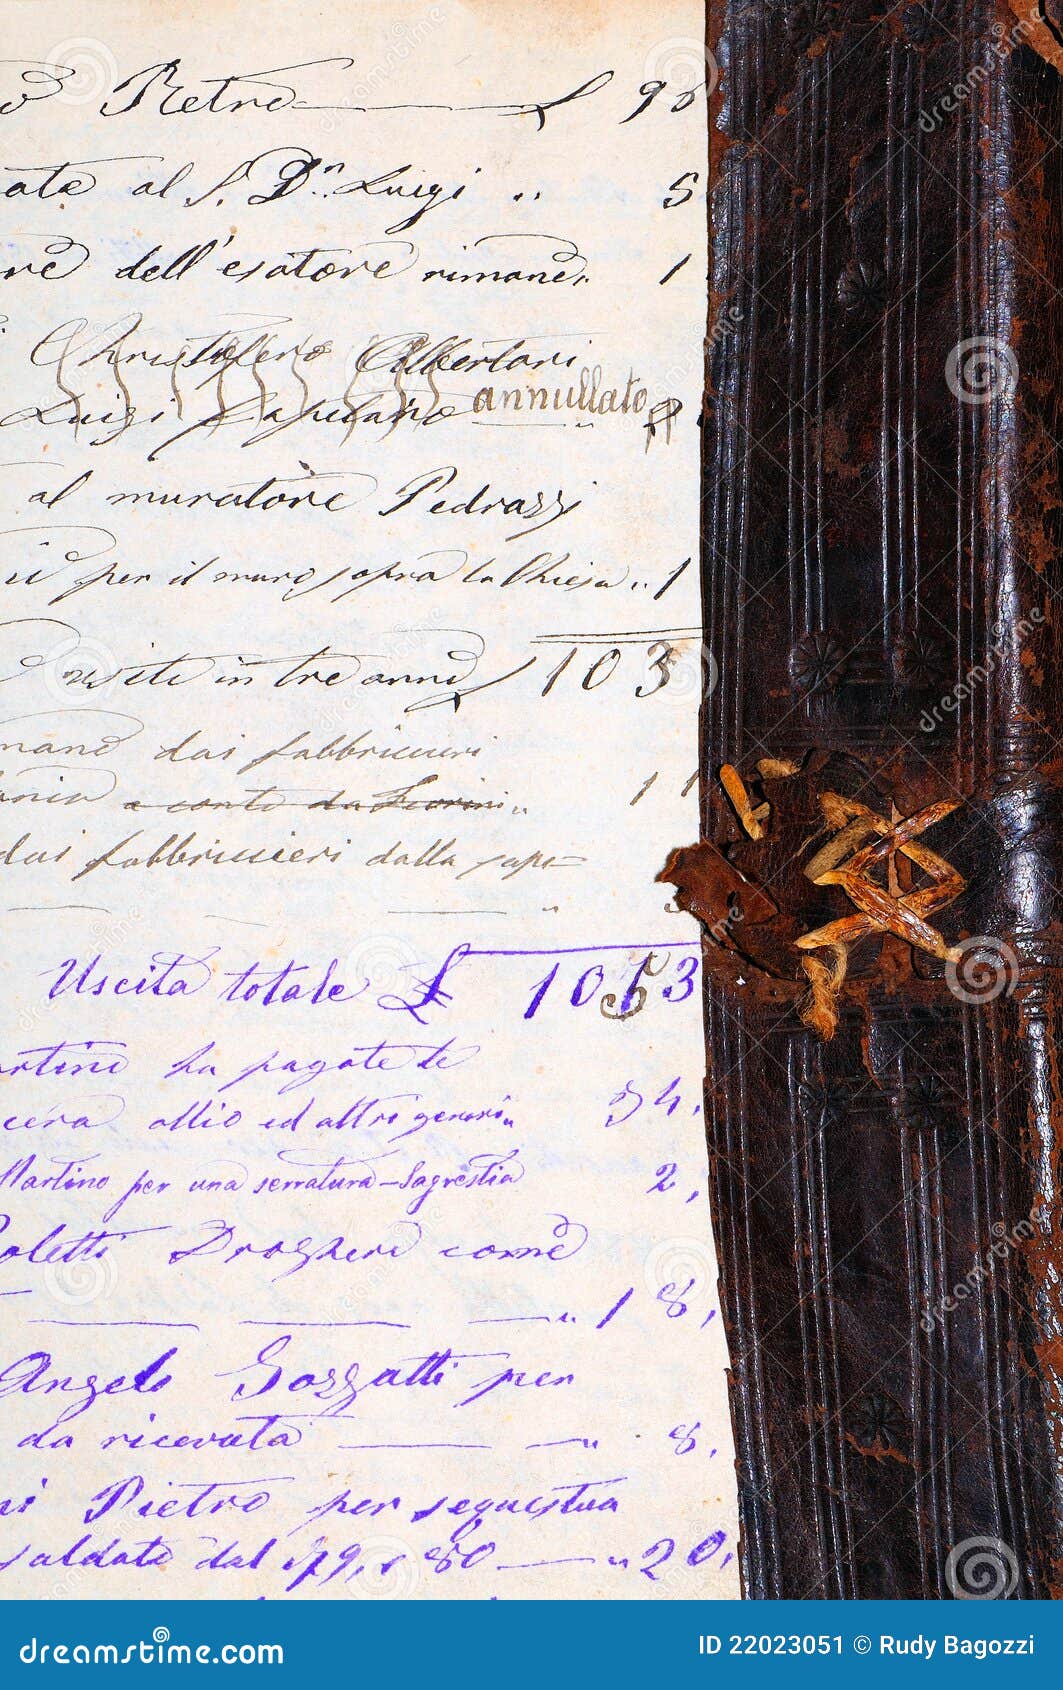 Retro £ 96
ate al S. Dn. Luigi „ 5
re dell'esatore rimane „ 1
Christoforo Albertari
Luigi annullato „ 2
al muratore Pedrazzi
per il muro sopra la Chiesa „ 1
uscite in tre anni £ 103
mane dai fabbricieri
a conto da „ 11
dai fabbricieri dalla
Uscita totale £ 1053
artino ha pagate le
cera ollio ed altri generi „ 34,
Martino per una serratura - Sagrestia 2,
oletti Droghere come
„ 18,
Angelo Gozzatti per
da ricevuta „ 8,
Pietro per sequestua
saldate dal 79, e 80 „ 20,
dreamstime.com
ID 22023051 © Rudy Bagozzi